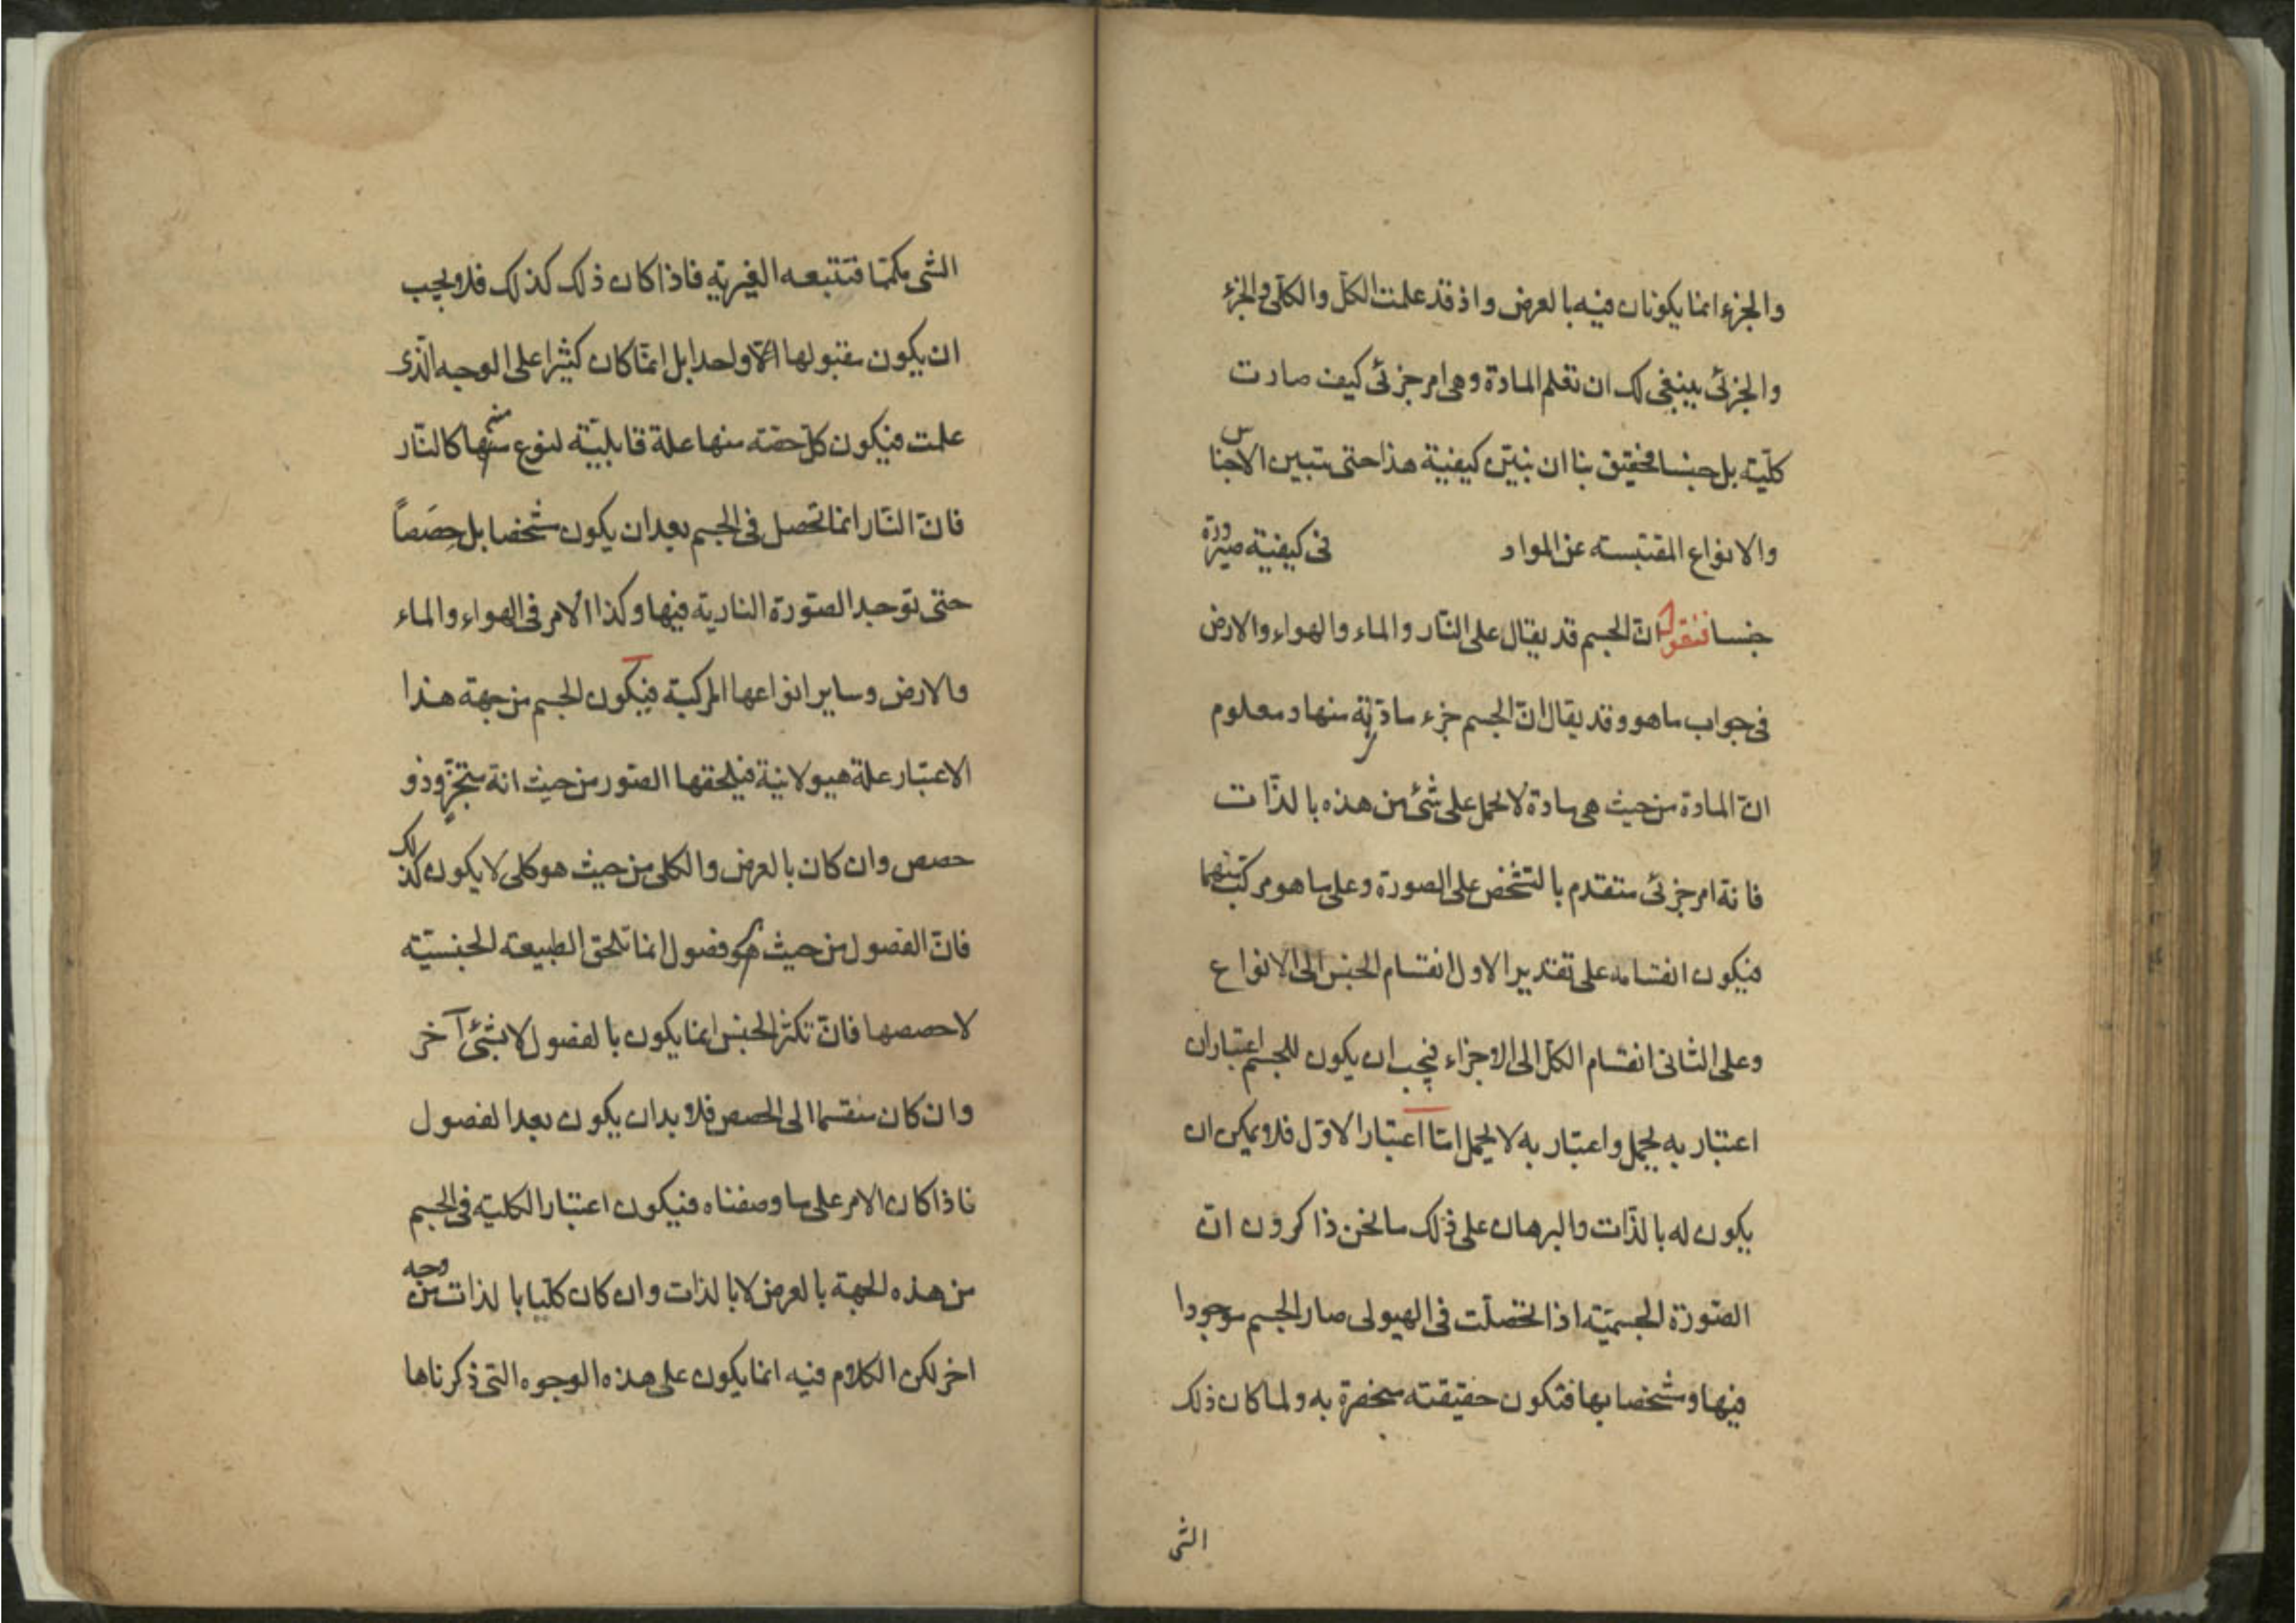 والجزء انما يكونان فيه بالعرض واذ قد علمت الكل والكلّى والجزء
والجزئى ينبغى لك ان تعلم المادة وهى امر جزئى كيف صارت
كلّية بل جنسا فحقيق بنا ان نبيّن كيفية هذا حتى تتبين الاجناس
والانواع المقتبسة عن المواد فى كيفية صيرورة
جنسا فنقول انّ الجسم قد يقال على النّار والماء والهواء والارض
فى جواب ما هو وقد يقال انّ الجسم جزء مادّية منها ومعلوم
انّ المادة من حيث هى مادة لا تحمل على شئ من هذه بالذّات
فانه امر جزئى متقدم بالتشخص على الصورة وعلى ما هو مركب منهما
فيكون انقسامه على تقدير الاول انقسام الجنس الى الانواع
وعلى الثانى انقسام الكل الى الاجزاء فيجب ان يكون للجسم اعتباران
اعتبار به يحمل واعتبار به لا يحمل امّا اعتبار الاوّل فلا يمكن ان
يكون له بالذّات والبرهان على ذلك ما نحن ذاكرون انّ
الصّورة الجسميّة اذا تحصلت فى الهيولى صار الجسم موجودا
فيها وشخصا بها فتكون حقيقته منحصرة به ولما كان ذلك
الشى
الشى مكمّما فتتبعه الغيرية فاذا كان ذلك كذلك فلا يجب
ان يكون مقبولها الّا واحدا بل انّما كان كثيرا على الوجه الّذى
علمت فيكون كلّ حصّة منها علة قابليّة لنوع منها كالنّار
فانّ النّار انما تحصل فى الجسم بعد ان يكون شخصا بل حِصَصاً
حتى توجد الصّورة النارية فيها وكذا الامر فى الهواء والماء
والارض وساير انواعها المركبة فيكون الجسم من جهة هذا
الاعتبار علة هيولانية فيلحقها الصّور من حيث انه متجزّ وذو
حصص وان كان بالعرض والكلى من حيث هو كلى لا يكون كذلك
فانّ الفصول من حيث هو فصول انما تلحق الطبيعة الجنسيّة
لا حصصها فانّ تكثّر الجنس انما يكون بالفصول لا بشئ آخر
وان كان منقسما الى الحصص فلا بد ان يكون بعد الفصول
فاذا كان الامر على ما وصفناه فيكون اعتبار الكلية فى الجسم
من هذه الجهة بالعرض لا بالذات وان كان كلّيا بالذات من وجه
اخر لكن الكلام فيه انما يكون على هذه الوجوه التى ذكرناها